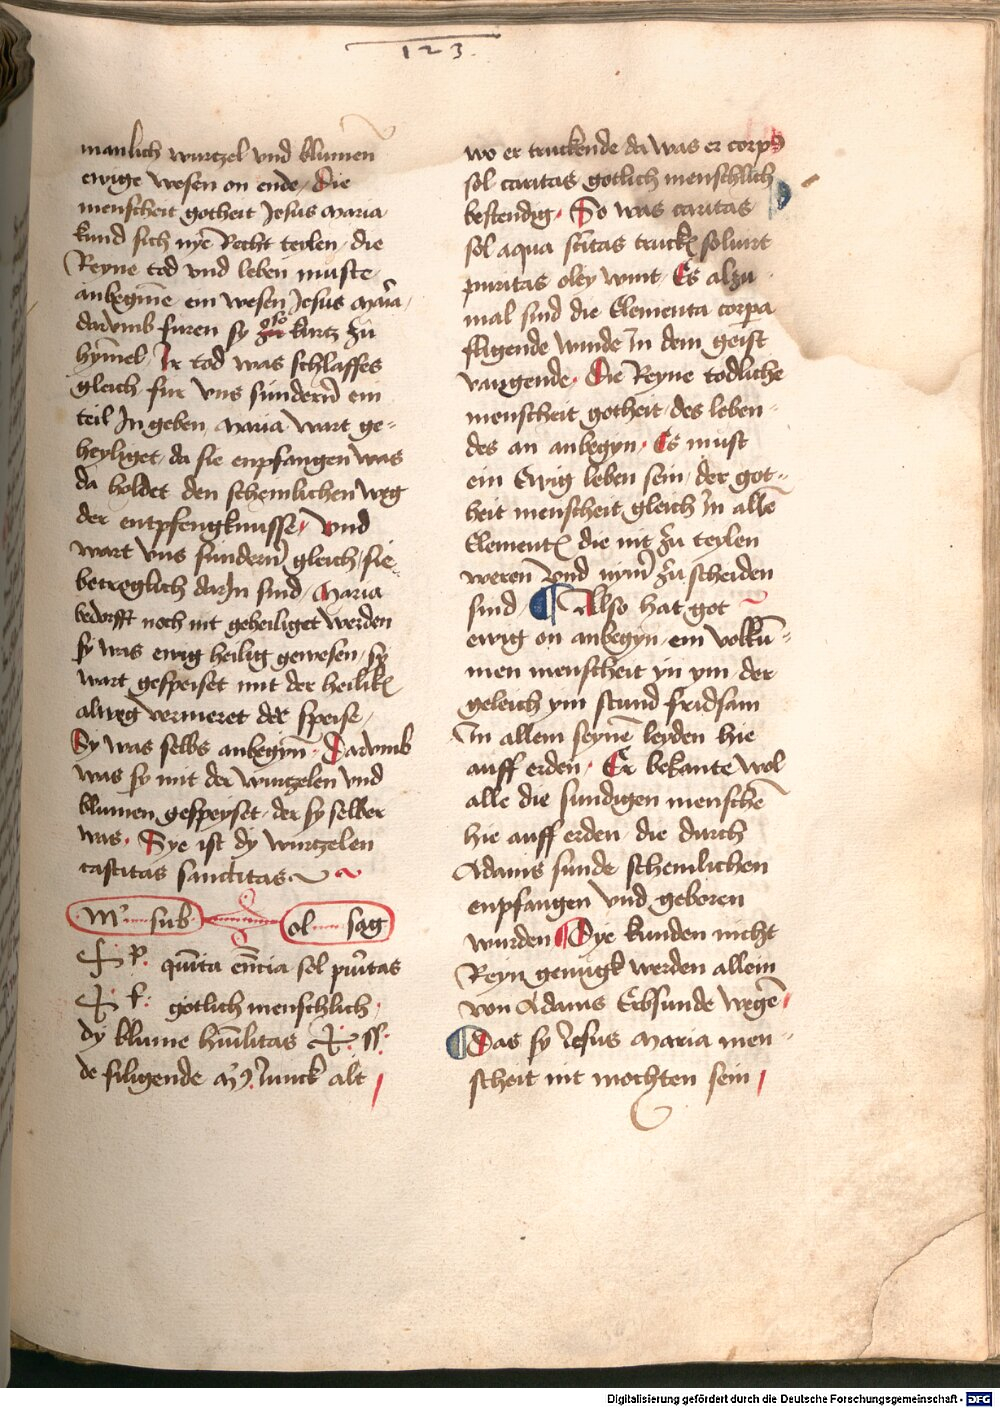 123.
manlich wurtzel vnd blumen
ewige wesen on ende / Die
menscheit gotheit Jesus maria
kund sich nye Recht teylen / die
Reyne tod vnd leben muste /
anbeginne ein wesen Jesus maria /
darvmb furen sy kurtz zu
hymel / Ir tod was schlaffes
gleich fur vns sundern ein
teil In geben / maria wart ge-
heyliget / da sie enpfangen was
da holdet den schemlichen weg
der entpfengknusse / vnd
wart vns sundern gleich / sie
betreglich darJn sind / Maria
bedorfft noch nit geheiliget werden
sy was ewig heilig gewesen / sy
wart gespeiset mit der heilik
alweg vermeret der speise /
Sy was selbs anbegyn · Darvmb
was sy mit der wurtzelen vnd
blumen gespeyset / der sy selber
was · Sye ist dy wurtzelen
castitas sanctitas
m sub ol sag
quinta encia sol puritas
gotlich menschlich ·
dy blume humilitas
de filigende Junck alt /
wo er truckende da was er corp9
sol caritas gotlich menschlich
bestendig · So was caritas
sol aqua scitas truck soluirt
puritas oley wint · Es alzu
mal sind die Elementa corpa
fligende winde in dem geist
vangende · Die Reyne todliche
menscheit gotheit / des leben-
des an anbegyn · Es must
ein Ewig leben sein / der got-
heit menscheit gleich in allen
Element die nit zu teylen
weren vnd nymer zu scheiden
sind ¶ Also hat got
ewig on anbegyn / ein volku-
men menscheit yn ym der
geleich ym stund fridsam
In allem seynem leyden hie
auff erden · Er bekante wol
alle die sundigen menschen
hie auff erden die durch
Adams sunde schemlichen
enpfangen vnd geboren
wurden ¶ Dye kunden nicht
Reyn genugk werden allein
von Adams Erbsunde wegen /
¶ Das sy Jesus Maria men-
scheit nit mochten sein /
Digitalisierung gefördert durch die Deutsche Forschungsgemeinschaft - DFG